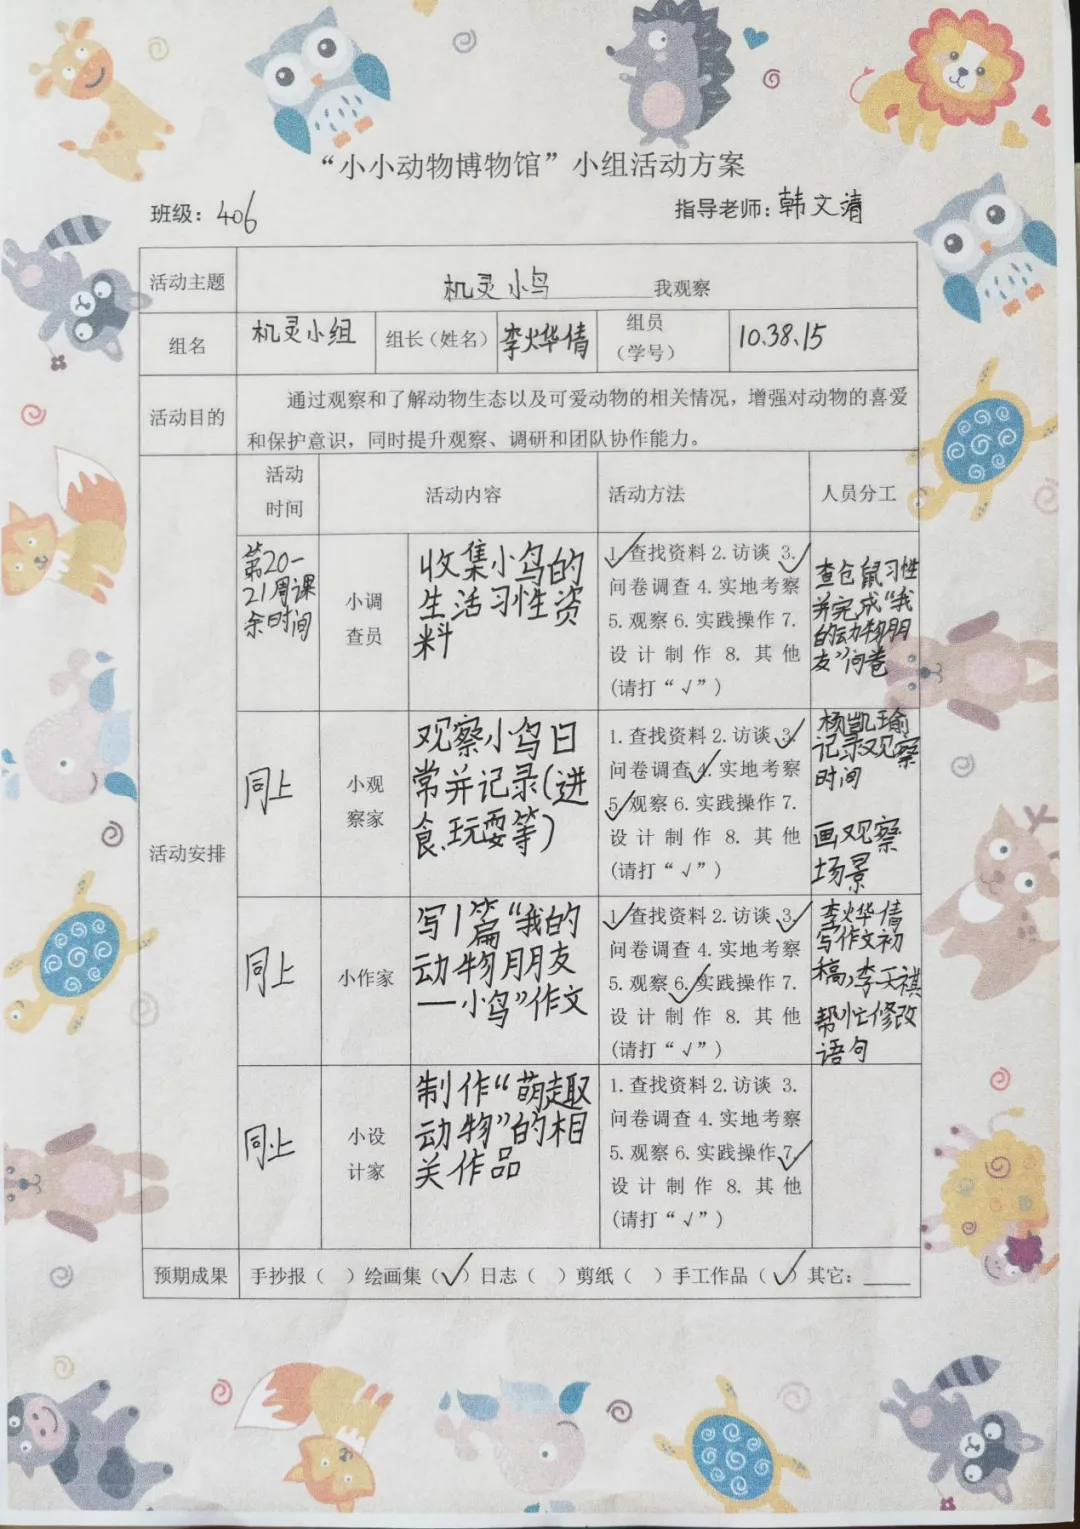 “小小动物博物馆”小组活动方案
班级：406
指导老师：韩文清
活动主题
机灵小鸟______我观察
组名
机灵小组
组长（姓名）
李烨倩
组员
（学号）
10.38.15
活动目的
通过观察和了解动物生态以及可爱动物的相关情况，增强对动物的喜爱
和保护意识，同时提升观察、调研和团队协作能力。
活动安排
活动
时间
活动内容
活动方法
人员分工
第20-
21周课
余时间
小调
查员
收集小鸟的
生活习性资
料
1.√查找资料 2.访谈 3.√
问卷调查 4.实地考察
5.观察 6.实践操作 7.
设计制作 8.其他
(请打“√”)
查仓鼠习性
并完成“我
的动物朋
友”问卷
同上
小观
察家
观察小鸟日
常并记录(进
食、玩耍等)
1.查找资料 2.访谈 3.√
问卷调查 4.√实地考察
5.√观察 6.实践操作 7.
设计制作 8.其他
(请打“√”)
杨凯瑜
记录观察
时间
画观察
场景
同上
小作家
写1篇“我的
动物朋友
—小鸟”作文
1.√查找资料 2.访谈 3.√
问卷调查 4.实地考察
5.观察 6.√实践操作 7.
设计制作 8.其他
(请打“√”)
李烨倩
写作文初
稿，李天祺
帮忙修改
语句
同上
小设
计家
制作“萌趣
动物”的相
关作品
1.查找资料 2.访谈 3.
问卷调查 4.实地考察
5.观察 6.实践操作 7.√
设计制作 8.其他
(请打“√”)
预期成果
手抄报（ ）绘画集（√）日志（ ）剪纸（ ）手工作品（√）其它：____